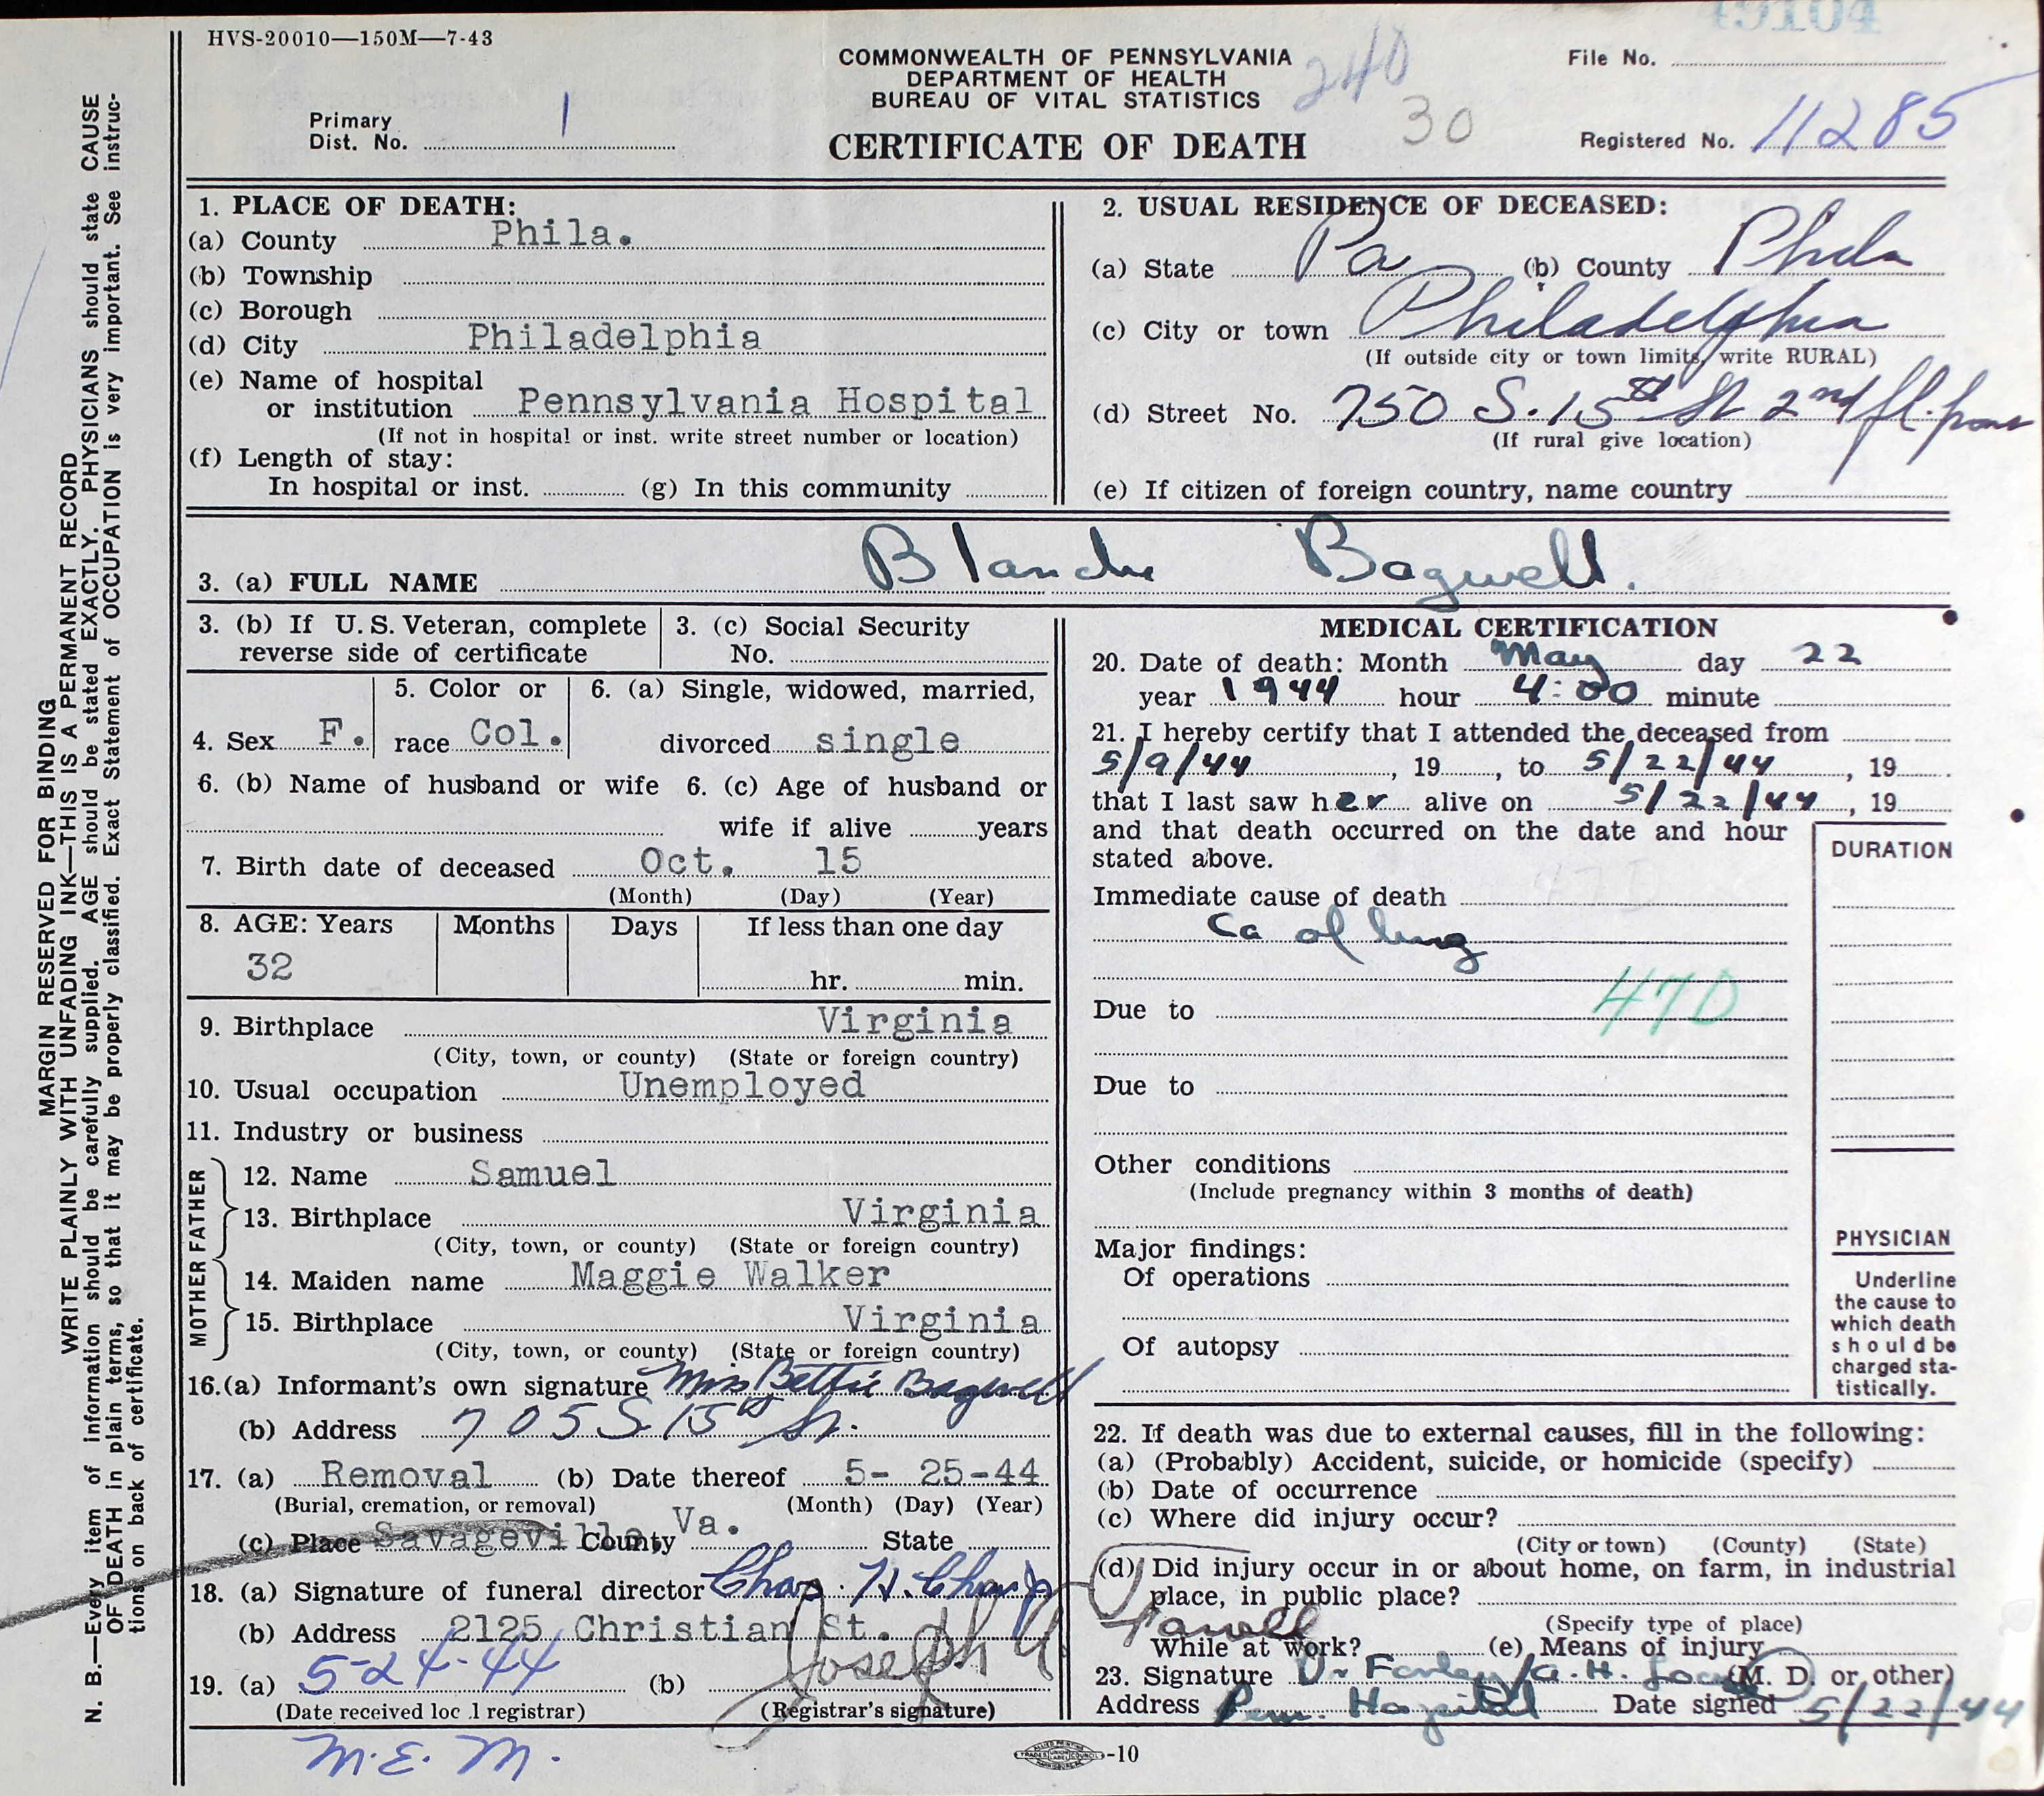 49104
HVS-20010—150M—7-43
COMMONWEALTH OF PENNSYLVANIA
DEPARTMENT OF HEALTH
BUREAU OF VITAL STATISTICS
240
30
File No.
Primary Dist. No. 1
CERTIFICATE OF DEATH
Registered No. 11285
MARGIN RESERVED FOR BINDING
WRITE PLAINLY WITH UNFADING INK—THIS IS A PERMANENT RECORD
N. B.—Every item of information should be carefully supplied. AGE should be stated EXACTLY. PHYSICIANS should state CAUSE
OF DEATH in plain terms, so that it may be properly classified. Exact Statement of OCCUPATION is very important. See instruc-
tions on back of certificate.
1. PLACE OF DEATH:
(a) County Phila.
(b) Township
(c) Borough
(d) City Philadelphia
(e) Name of hospital
or institution Pennsylvania Hospital
(If not in hospital or inst. write street number or location)
(f) Length of stay:
In hospital or inst. (g) In this community
2. USUAL RESIDENCE OF DECEASED:
(a) State Pa (b) County Phila
(c) City or town Philadelphia
(If outside city or town limits, write RURAL)
(d) Street No. 750 S. 15th St 2nd fl. front
(If rural give location)
(e) If citizen of foreign country, name country
3. (a) FULL NAME Blanche Bagwell.
3. (b) If U. S. Veteran, complete
reverse side of certificate
3. (c) Social Security
No.
4. Sex F.
5. Color or
race Col.
6. (a) Single, widowed, married,
divorced single
6. (b) Name of husband or wife
6. (c) Age of husband or
wife if alive years
7. Birth date of deceased Oct. 15
(Month) (Day) (Year)
8. AGE: Years Months Days If less than one day
32
hr. min.
9. Birthplace Virginia
(City, town, or county) (State or foreign country)
10. Usual occupation Unemployed
11. Industry or business
FATHER
12. Name Samuel
13. Birthplace Virginia
(City, town, or county) (State or foreign country)
MOTHER
14. Maiden name Maggie Walker
15. Birthplace Virginia
(City, town, or county) (State or foreign country)
16.(a) Informant's own signature Miss Bettie Bagwell
(b) Address 705 S 15th St.
17. (a) Removal (b) Date thereof 5- 25-44
(Burial, cremation, or removal) (Month) (Day) (Year)
(c) Place Savageville, County Va. State
18. (a) Signature of funeral director Chas. H.
(b) Address 2125 Christian St.
19. (a) 5-24-44 (b) Joseph A
(Date received loc l registrar) (Registrar's signature)
M. E. M.
MEDICAL CERTIFICATION
20. Date of death: Month May day 22
year 1944 hour 4:00 minute
21. I hereby certify that I attended the deceased from
5/9/44, 19 , to 5/22/44, 19
that I last saw her alive on 5/22/44, 19
and that death occurred on the date and hour
stated above.
DURATION
Immediate cause of death
Ca of lung
47D
Due to
Due to
Other conditions
(Include pregnancy within 3 months of death)
Major findings:
Of operations
Of autopsy
PHYSICIAN
Underline
the cause to
which death
should be
charged sta-
tistically.
22. If death was due to external causes, fill in the following:
(a) (Probably) Accident, suicide, or homicide (specify)
(b) Date of occurrence
(c) Where did injury occur?
(City or town) (County) (State)
(d) Did injury occur in or about home, on farm, in industrial
place, in public place?
(Specify type of place)
While at work? (e) Means of injury
23. Signature Dr Farley/A. H. (M. D. or other)
Address Penn. Hospital Date signed 5/22/44
-10